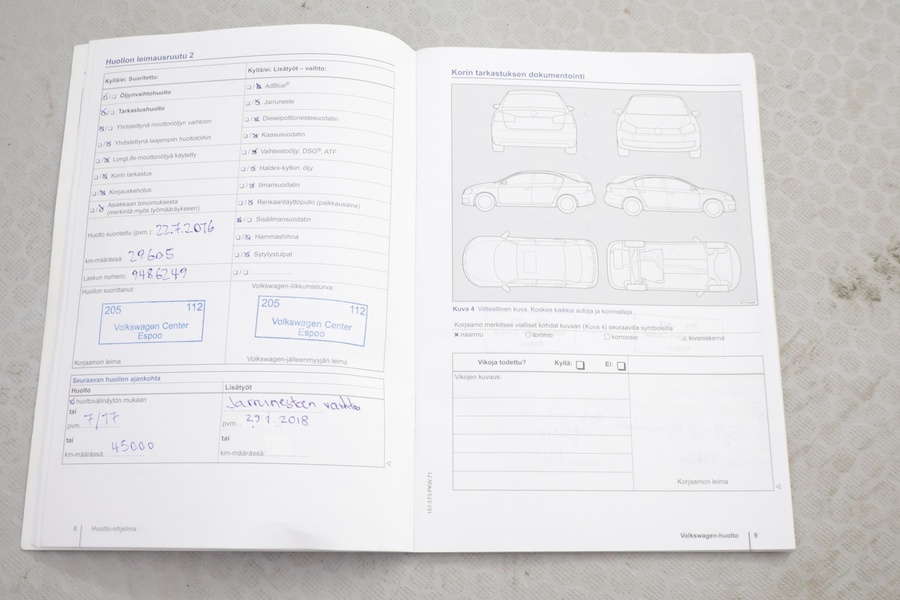 Huollon leimausruutu 2
Kyllä/ei. Suoritettu:
Öljynvaihtohuolto
Tarkastushuolto
Yhdistettynä moottoriöljyn vaihtoon
Yhdistettynä laajempiin huoltotöihin
LongLife-moottoriöljyä käytetty
Korin tarkastus
Korjauskehotus
Asiakkaan toivomuksesta
(merkintä myös työmääräykseen)
Huolto suoritettu (pvm.): 22.7.2016
km-määrässä: 29605
Laskun numero: 9486249
Huollon suorittanut:
205 112
Volkswagen Center
Espoo
Korjaamon leima
Kyllä/ei. Lisätyöt – vaihto:
AdBlue®
Jarruneste
Dieselpolttonestesuodatin
Kaasusuodatin
Vaihteistoöljy, DSG®, ATF
Haldex-kytkin: öljy
Ilmansuodatin
Renkaantäyttöpullo (paikkausaine)
Sisäilmansuodatin
Hammashihna
Sytytystulpat
Volkswagen-liikkumisturva:
205 112
Volkswagen Center
Espoo
Volkswagen-jälleenmyyjän leima
Seuraavan huollon ajankohta
Huolto
huoltovälinäytön mukaan
tai
pvm. 7/17
tai
km-määrässä: 45000
Lisätyöt
Jarrunesteen vaihto
pvm. 29.1.2018
tai
km-määrässä:
8 Huolto-ohjelma
Korin tarkastuksen dokumentointi
Kuva 4 Viitteellinen kuva. Koskee kaikkia autoja ja korimalleja
Korjaamo merkitsee vialliset kohdat kuvaan (Kuva 4) seuraavilla symboleilla:
naarmu lommo korroosio kiveniskemä
Vikoja todettu? Kyllä: Ei:
Vikojen kuvaus:
Korjaamon leima
Volkswagen-huolto 9